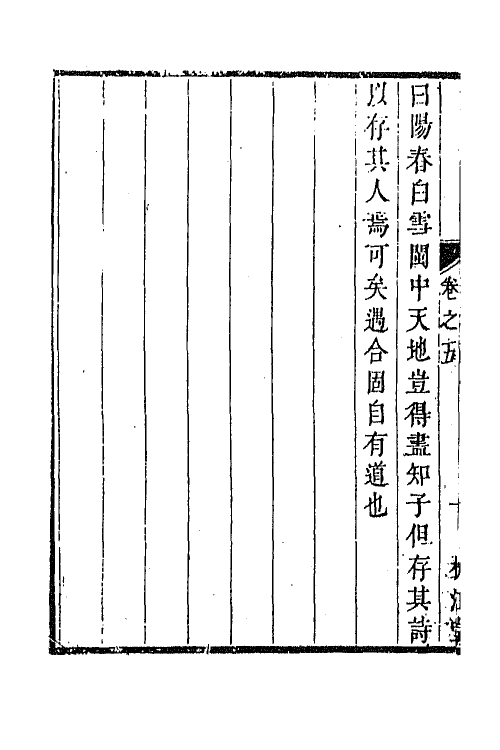 曰陽春白雪閩中天地豈得盡知子但存其詩
以存其人焉可矣遇合固自有道也
卷之五
十